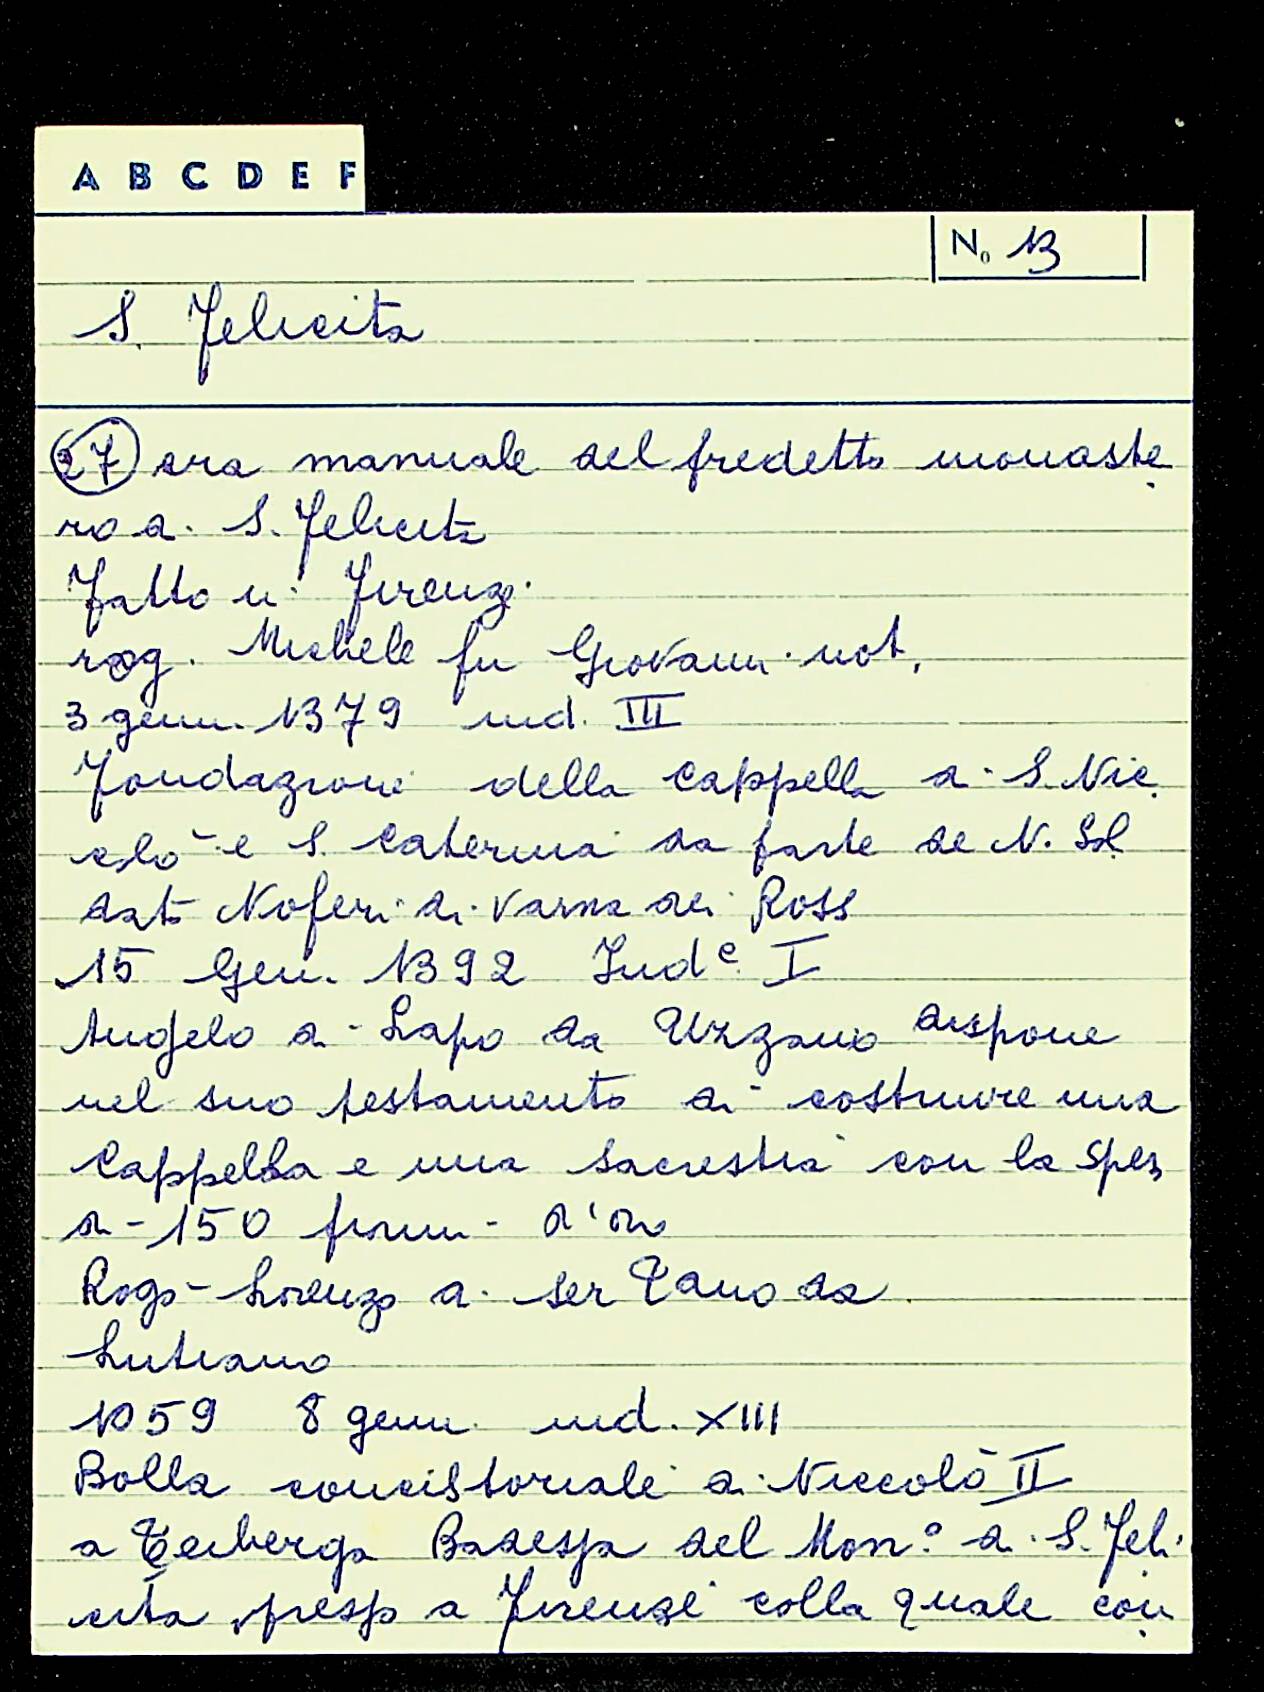 A B C D E F
No 13
S. Felicita
27 era manuale del predetto monaste
ro di S. Felicita
Fatto in Firenze
rog. Michele fu Giovanni not.
3 genn. 1379 ind. III
Fondazione della cappella di S. Nic
colò e S. Caterina da parte de N. Sol
dato Noferi di Vanna dei Rossi
15 Gen. 1392 Ind.e I
Angelo di Lapo da Uzzano dispone
nel suo testamento di costruire una
Cappella e una sacrestia con la spesa
di 150 fiorini d'oro
Rogò Lorenzo di ser Tano da
Lutiano
1059 8 genn. ind. XIII
Bolla concistoriale di Niccolò II
a Teiberga Badessa del Mon.o di S. Feli
cita presso a Firenze colla quale con